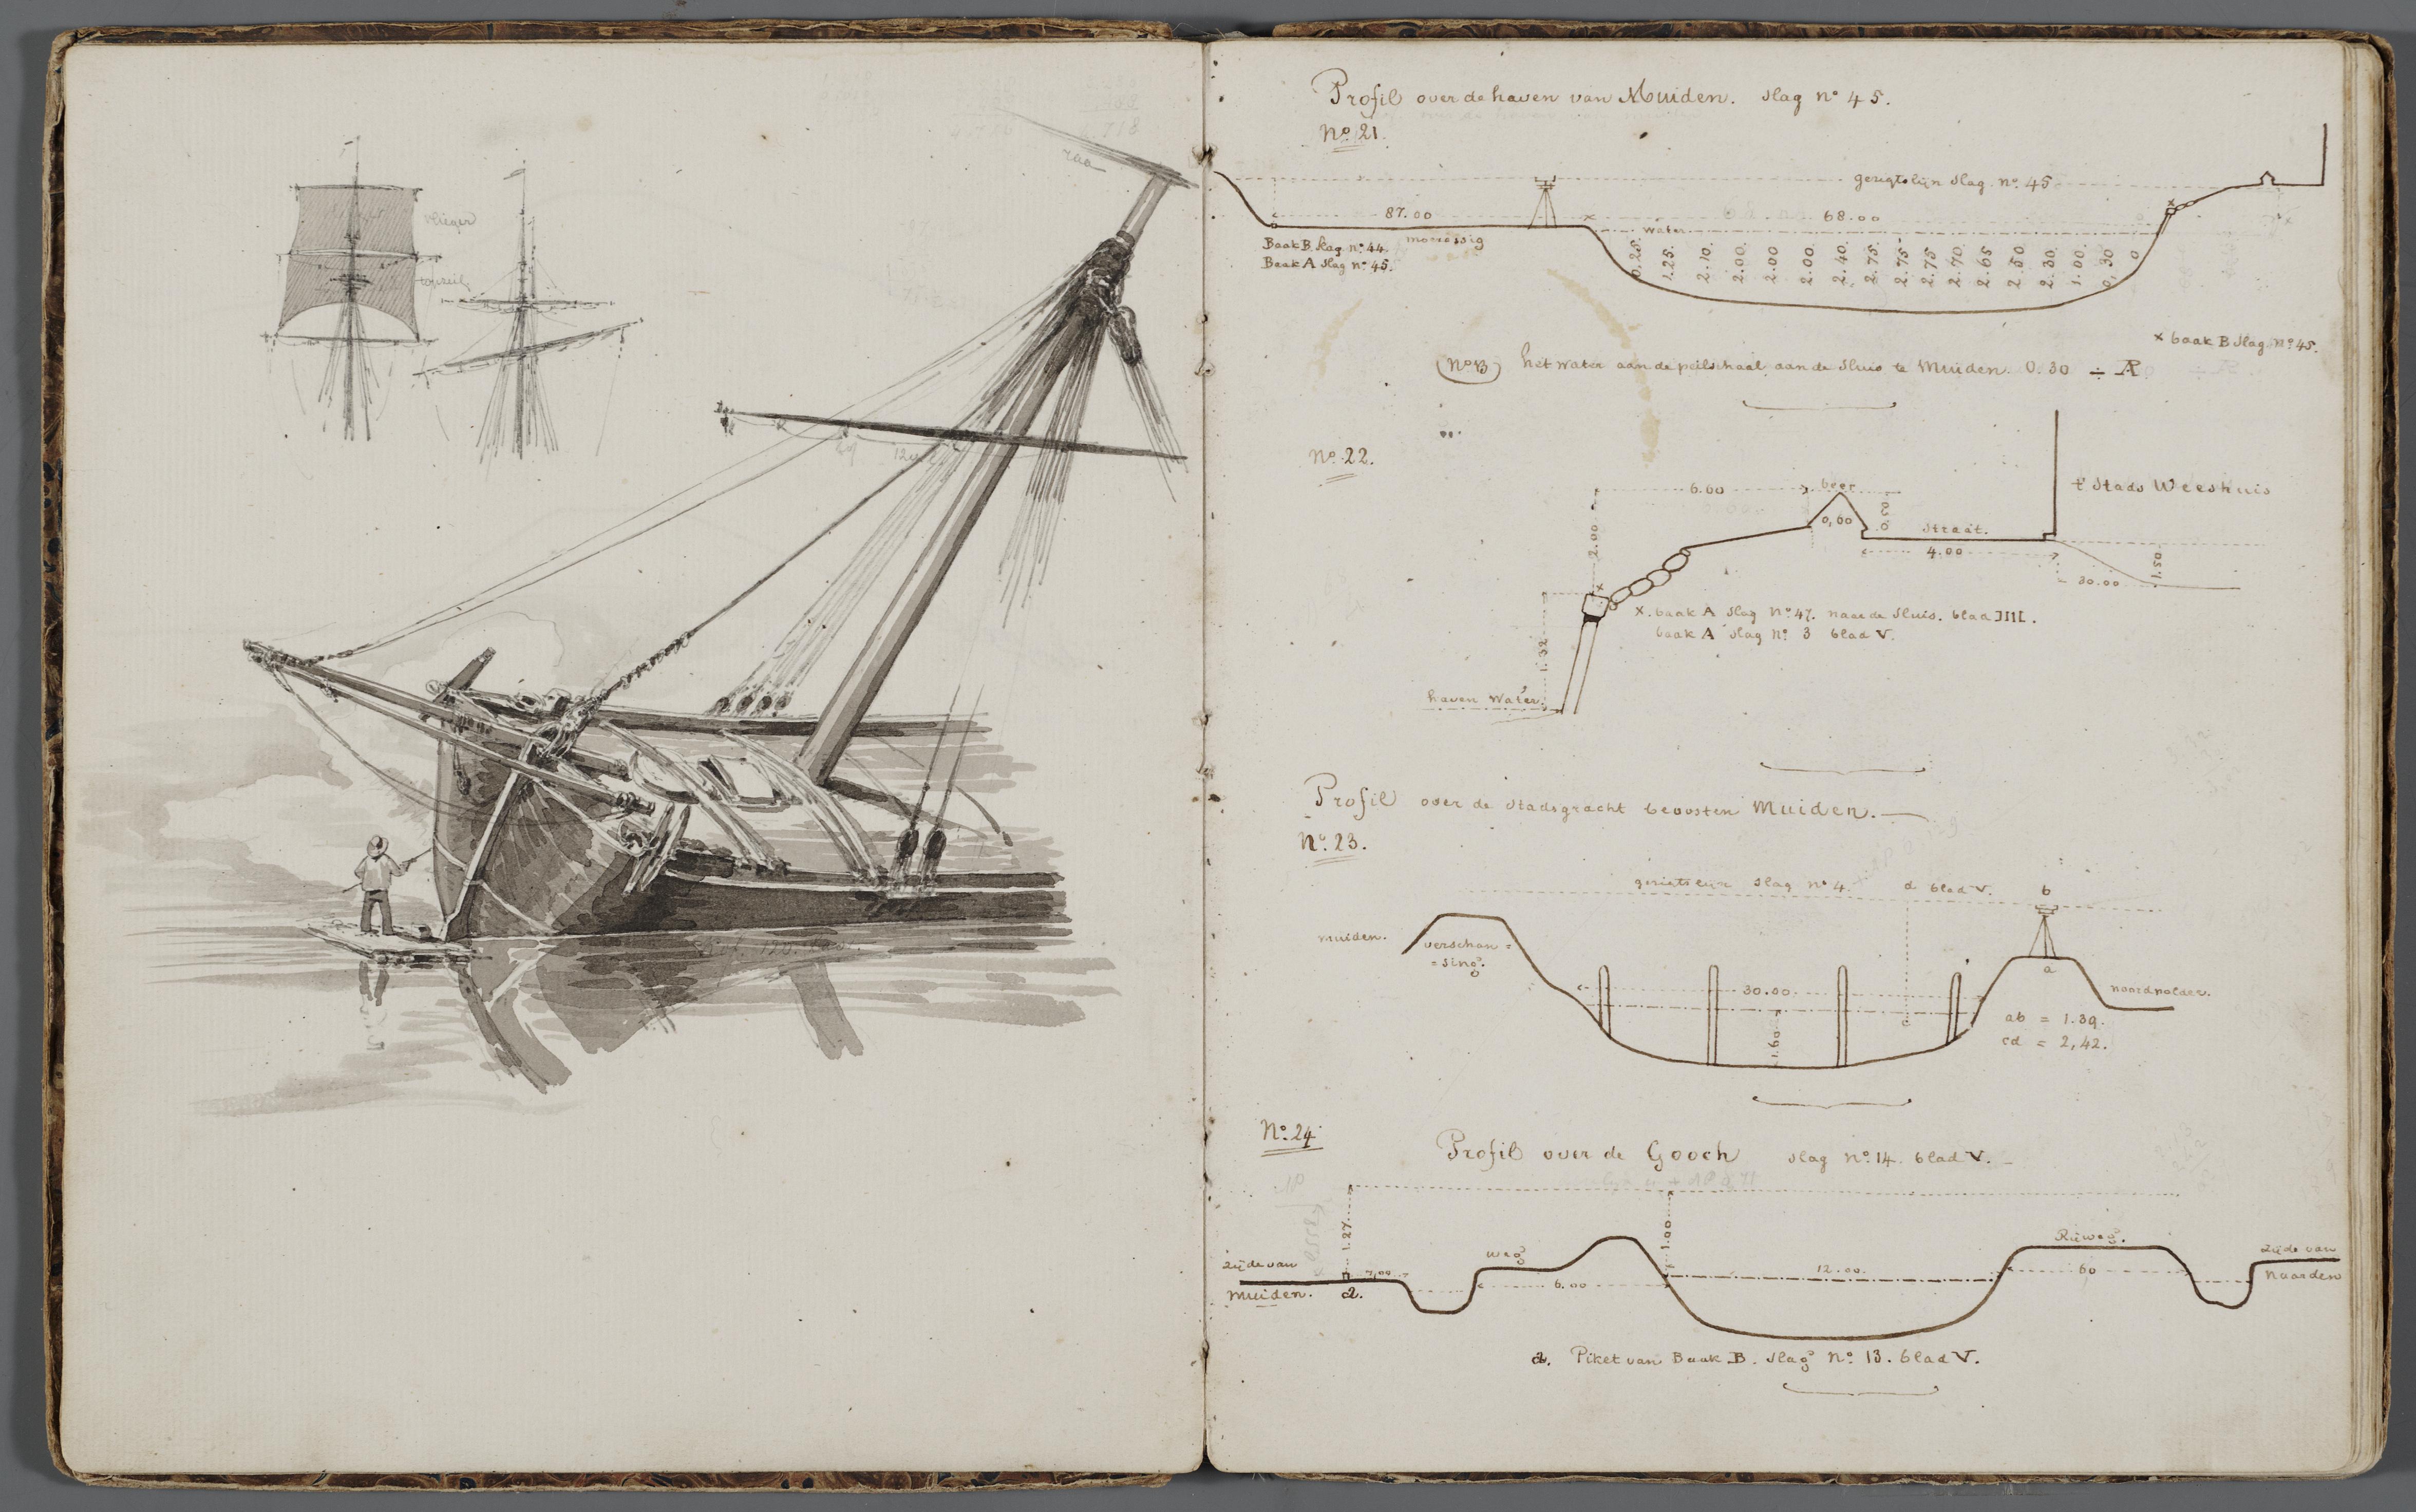 4.718
raa
vlieger
topzeil
Profil over de haven van Muiden. Slag nº 45.
Nº 21.
gerigtslijn Slag nº 45
87.00
68.00
water
moerassig
Baak B. Slag nº 44.
Baak A Slag nº 45.
0.25.
1.25.
2.10.
2.00.
2.00
2.00.
2.40.
2.75.
2.75
2.75
2.70.
2.65
2.50
2.30.
1.00.
0,30
0
x baak B Slag nº 45.
NB het water aan de peilschaal aan de Sluis te Muiden. 0.30 ÷ AP.
Nº 22.
6.00
beer
't Stads Weeshuis
2.00
0,60
0.50
Straat.
4.00
1.50
30.00
x. baak A Slag Nº 47. naar de Sluis. blad III.
baak A Slag nº 3 blad V.
1.32
haven Water.
Profil over de Stadsgracht beoosten Muiden.
Nº 23.
gerigtslijn Slag nº 4.
d blad V.
b
muiden.
verschan=
=sing.
a
30.00.
noordpolder.
c
1.60
ab = 1.39.
cd = 2,42.
Nº 24
Profil over de Gooch Slag nº 14. blad V.
1.27
1.00
weg
Rijweg.
Zijde van
muiden.
a.
7,00
6.00
12.00.
60
Zijde van
Naarden
a. Piket van Baak B. Slag nº 13. blad V.